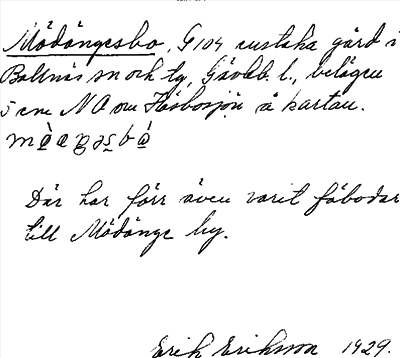 Mödängesbo, G 104 rustska gård i
Bollnäs sn och tg, Gävleb. l., belägen
5 cm NO om Häsbosjön å kartan.
Där har förr även varit fäbodar
till Mödänge by.
Erik Eriksson 1929.